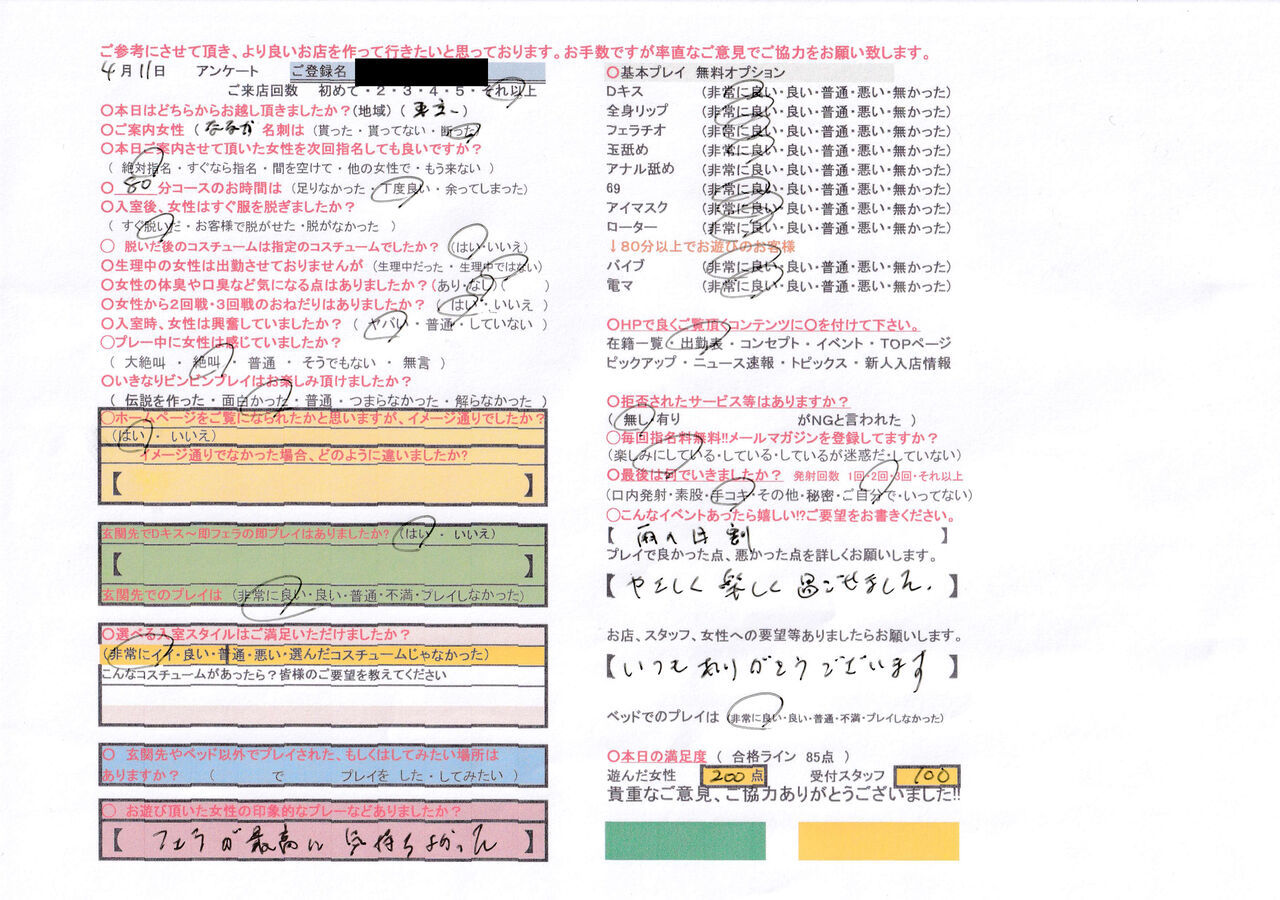 ご参考にさせて頂き、より良いお店を作って行きたいと思っております。お手数ですが率直なご意見でご協力をお願い致します。
4月11日 アンケート ご登録名
ご来店回数 初めて・2・3・4・5・それ以上
〇本日はどちらからお越し頂きましたか?(地域)(東京)
〇ご案内女性( 名刺は(貰った・貰ってない・断った)
〇本日ご案内させて頂いた女性を次回指名しても良いですか?
(絶対指名・すぐなら指名・間を空けて・他の女性で・もう来ない)
〇 80 分コースのお時間は(足りなかった・丁度良い・余ってしまった)
〇入室後、女性はすぐ服を脱ぎましたか?
(すぐ脱いだ・お客様で脱がせた・脱がなかった )
〇 脱いだ後のコスチュームは指定のコスチュームでしたか?(はい・いいえ)
〇生理中の女性は出勤させておりませんが(生理中だった・生理中ではない)
〇女性の体臭や口臭など気になる点はありましたか?(あり・なし)( )
〇女性から2回戦・3回戦のおねだりはありましたか?( はい・いいえ )
〇入室時、女性は興奮していましたか?( ヤバい・普通・していない )
〇プレー中に女性は感じていましたか?
( 大絶叫 ・ 絶叫 ・ 普通 ・ そうでもない ・ 無言 )
〇いきなりビンビンプレイはお楽しみ頂けましたか?
( 伝説を作った・面白かった・普通・つまらなかった・解らなかった )
〇ホームページをご覧になられたかと思いますが、イメージ通りでしたか?
(はい ・ いいえ)
イメージ通りでなかった場合、どのように違いましたか?
【 】
玄関先でDキス~即フェラの即プレイはありましたか?(はい ・ いいえ)
【 】
玄関先でのプレイは (非常に良い・良い・普通・不満・プレイしなかった)
〇選べる入室スタイルはご満足いただけましたか?
(非常にイイ・良い・普通・悪い・選んだコスチュームじゃなかった)
こんなコスチュームがあったら?皆様のご要望を教えてください
〇 玄関先やベッド以外でプレイされた、もしくはしてみたい場所は
ありますか? ( で プレイを した・してみたい )
〇 お遊び頂いた女性の印象的なプレーなどありましたか?
【 フェラが最高に気持ちよかった 】
〇基本プレイ 無料オプション
Dキス (非常に良い・良い・普通・悪い・無かった)
全身リップ (非常に良い・良い・普通・悪い・無かった)
フェラチオ (非常に良い・良い・普通・悪い・無かった)
玉舐め (非常に良い・良い・普通・悪い・無かった)
アナル舐め (非常に良い・良い・普通・悪い・無かった)
69 (非常に良い・良い・普通・悪い・無かった)
アイマスク (非常に良い・良い・普通・悪い・無かった)
ローター (非常に良い・良い・普通・悪い・無かった)
↓80分以上でお遊びのお客様
バイブ (非常に良い・良い・普通・悪い・無かった)
電マ (非常に良い・良い・普通・悪い・無かった)
〇HPで良くご覧頂くコンテンツに〇を付けて下さい。
在籍一覧・出勤表・コンセプト・イベント・TOPページ
ピックアップ・ニュース速報・トピックス・新人入店情報
〇拒否されたサービス等はありますか?
( 無し・有り がNGと言われた )
〇毎回指名料無料!!メールマガジンを登録してますか?
(楽しみにしている・している・しているが迷惑だ・していない)
〇最後は何でいきましたか? 発射回数 1回・2回・3回・それ以上
(口内発射・素股・手コキ・その他・秘密・ご自分で・いってない)
〇こんなイベントあったら嬉しい!?ご要望をお書きください。
【 雨の日割 】
プレイで良かった点、悪かった点を詳しくお願いします。
【 やさしく楽しく過ごせました。 】
お店、スタッフ、女性への要望等ありましたらお願いします。
【 いつもありがとうございます 】
ベッドでのプレイは (非常に良い・良い・普通・不満・プレイしなかった)
〇本日の満足度 ( 合格ライン 85点 )
遊んだ女性 200点 受付スタッフ 100
貴重なご意見、ご協力ありがとうございました!!